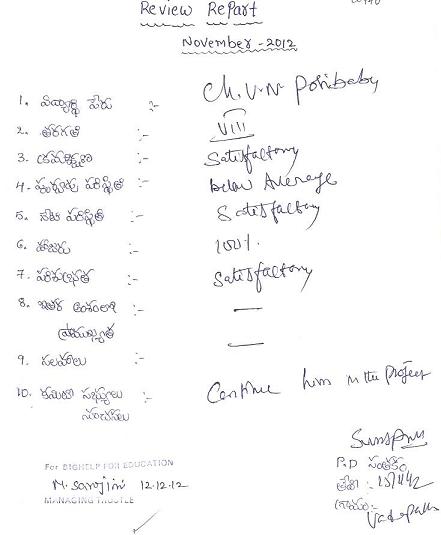 Review Report
November - 2012
1. విద్యార్థి పేరు :- Ch. V.N. Ponbabu
2. తరగతి :- VIII
3. క్రమశిక్షణ :- Satisfactory
4. పూర్వపు పరిస్థితి :- below Average
5. నేటి పరిస్థితి :- Satisfactory
6. హాజరు :- 100%.
7. పరిశుభ్రత :- Satisfactory
8. ఇతర అంశంలో :- —
ప్రాముఖ్యత
9. సలహాలు :- —
10. కమిటీ సభ్యులు :- Continue him in the project
సూచనలు
P.D సంతకం
For BIGHELP FOR EDUCATION
తేది :-
M. Sarojini 12.12.12
గ్రామం:-
MANAGING TRUSTEE